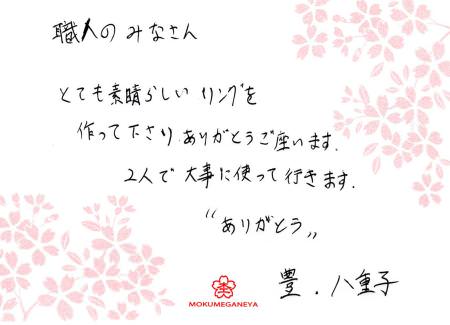 職人の みなさん
とても素晴らしい リングを
作って下さり ありがとうご座います.
2人で 大事に使って行きます.
“ありがとう„
豊 . 八重子
MOKUMEGANEYA